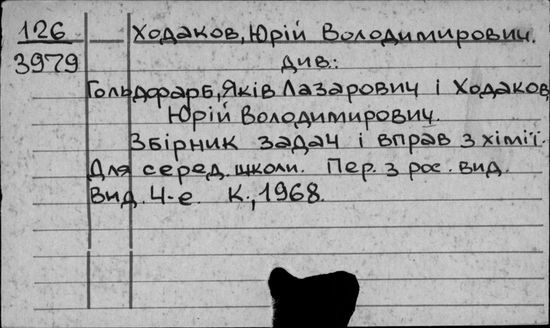 126 Ходаков, Юрій Володимирович.
3979 див:
Гольдфарб, Яків Лазарович і Ходаков,
Юрій Володимирович.
Збірник задач і вправ з хімії.
Для серед. школи. Пер. з рос. вид.
Вид. 4-е. К., 1968.